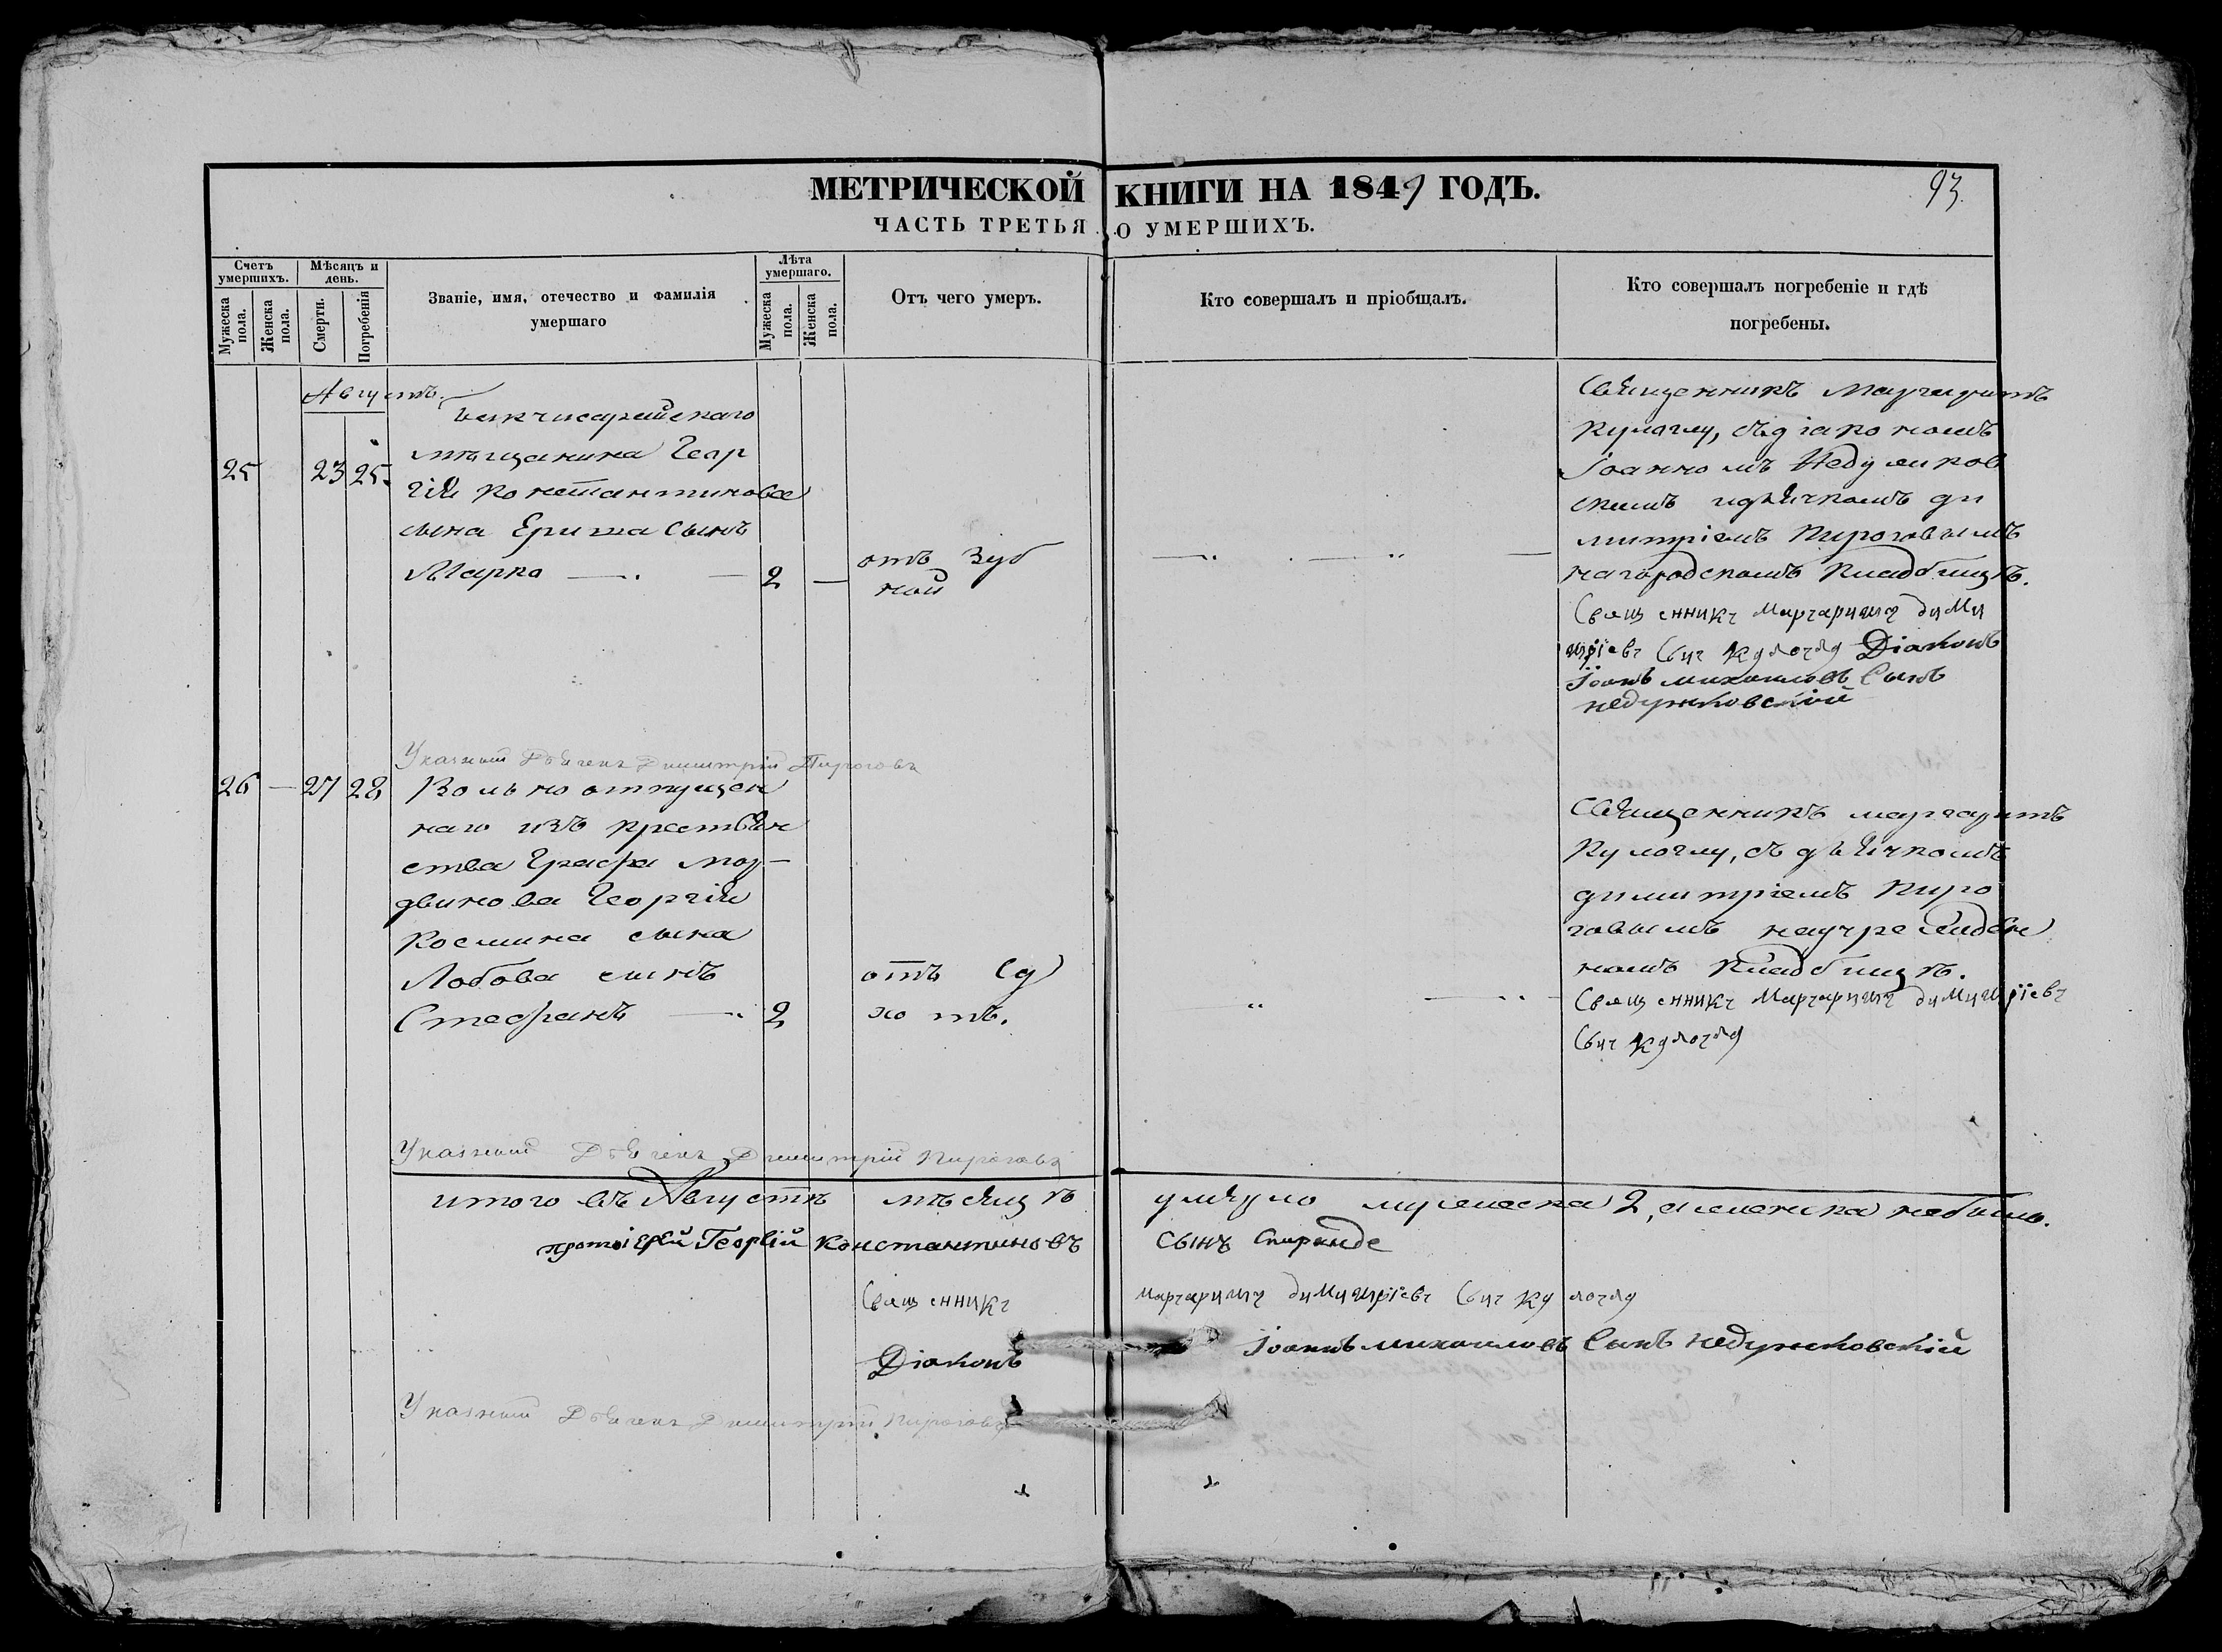 МЕТРИЧЕСКОЙ КНИГИ НА 1849 ГОДЪ.
93.
ЧАСТЬ ТРЕТЬЯ О УМЕРШИХЪ.
Счетъ умершихъ.
Мужеска пола.
Женска пола.
Мѣсяцъ и день.
Смерти.
Погребенія
Званіе, имя, отечество и фамилія
умершаго
Лѣта умершаго.
Мужеска пола.
Женска пола.
Отъ чего умеръ.
Кто совершалъ и пріобщалъ.
Кто совершалъ погребеніе и гдѣ
погребены.
Августъ.
25 23 25.
мѣщанина Геор
гія Константинова
сына Сынъ
Марко — 2 —
отъ Зуб
ной
Священникъ Маргаритъ
Кулоглу, съ діакономъ
Іоанномъ Недзелков
скимъ и дьячкомъ ди
митріемъ Пироговымъ
на городскомъ кладбищѣ.
Священникъ Маргаритъ дими
тріевъ Сынъ Кулоглу Діаконъ
Іоанъ михаиловъ Сынъ
Указный Дьячекъ Димитрій Пироговъ
26 — 27 28
Вольноотпущен
наго изъ крестьян
ства Графа Мор-
двинова Георгія
Космина сына
Лобова сынъ
Стефанъ — 2
отъ Су
хотъ.
Священникъ маргаритъ
Кулоглу, съ дьячкомъ
димитріемъ Пиро
говымъ на
номъ кладбищѣ.
Священникъ Маргаритъ димитріевъ
Сынъ Кулоглу
Указный Дьячекъ Димитрій Пироговъ
итого въ Августѣ мѣсяцѣ умерло мужеска 2, а женска небыло.
протоіерей Георгій Константиновъ сынъ Спиранде
Священникъ маргаритъ димитріевъ Сынъ Кулоглу
Діаконъ Іоанъ михаиловъ Сынъ
Указный Дьячекъ Димитрій Пироговъ